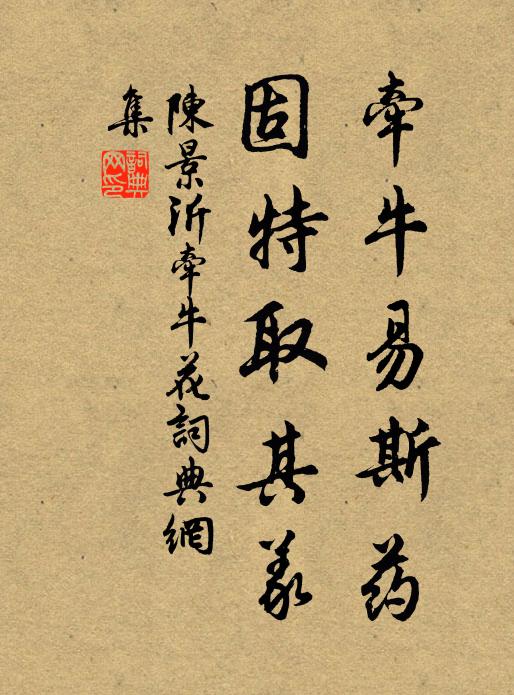 牽牛易斯药
固特取其義
陳景沂牽牛花詞典網
集
詞典
网印